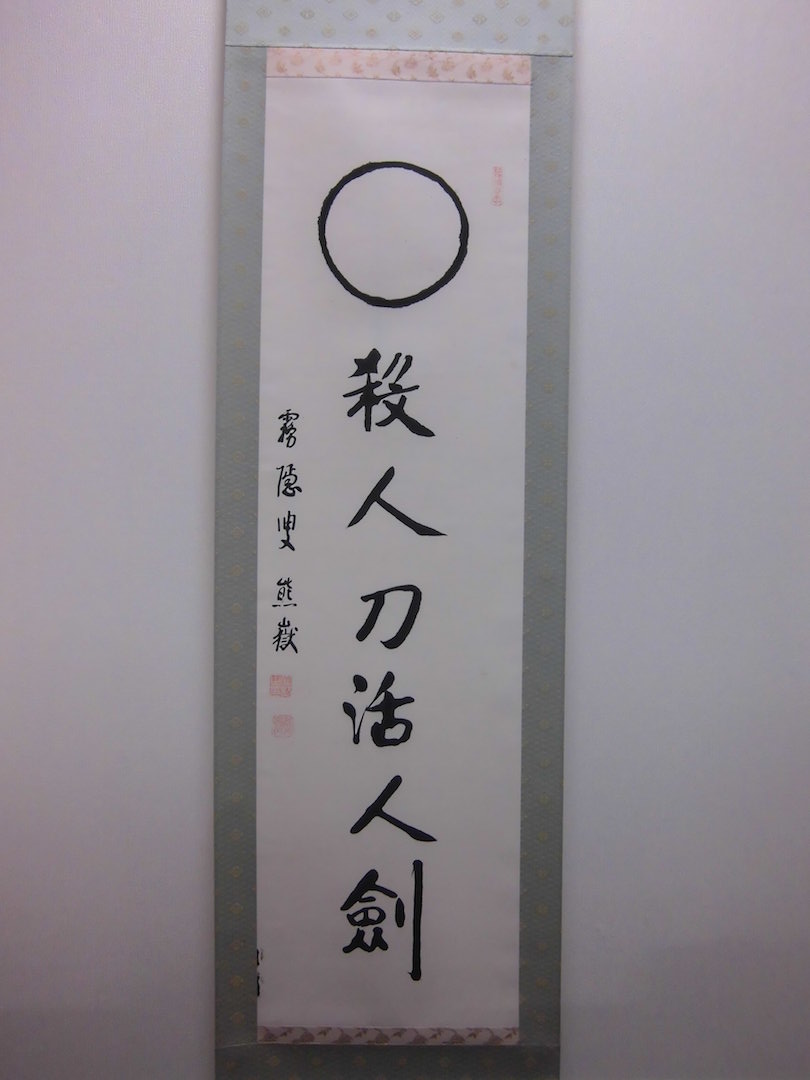 殺人刀活人劍
霧隱叟熊嶽